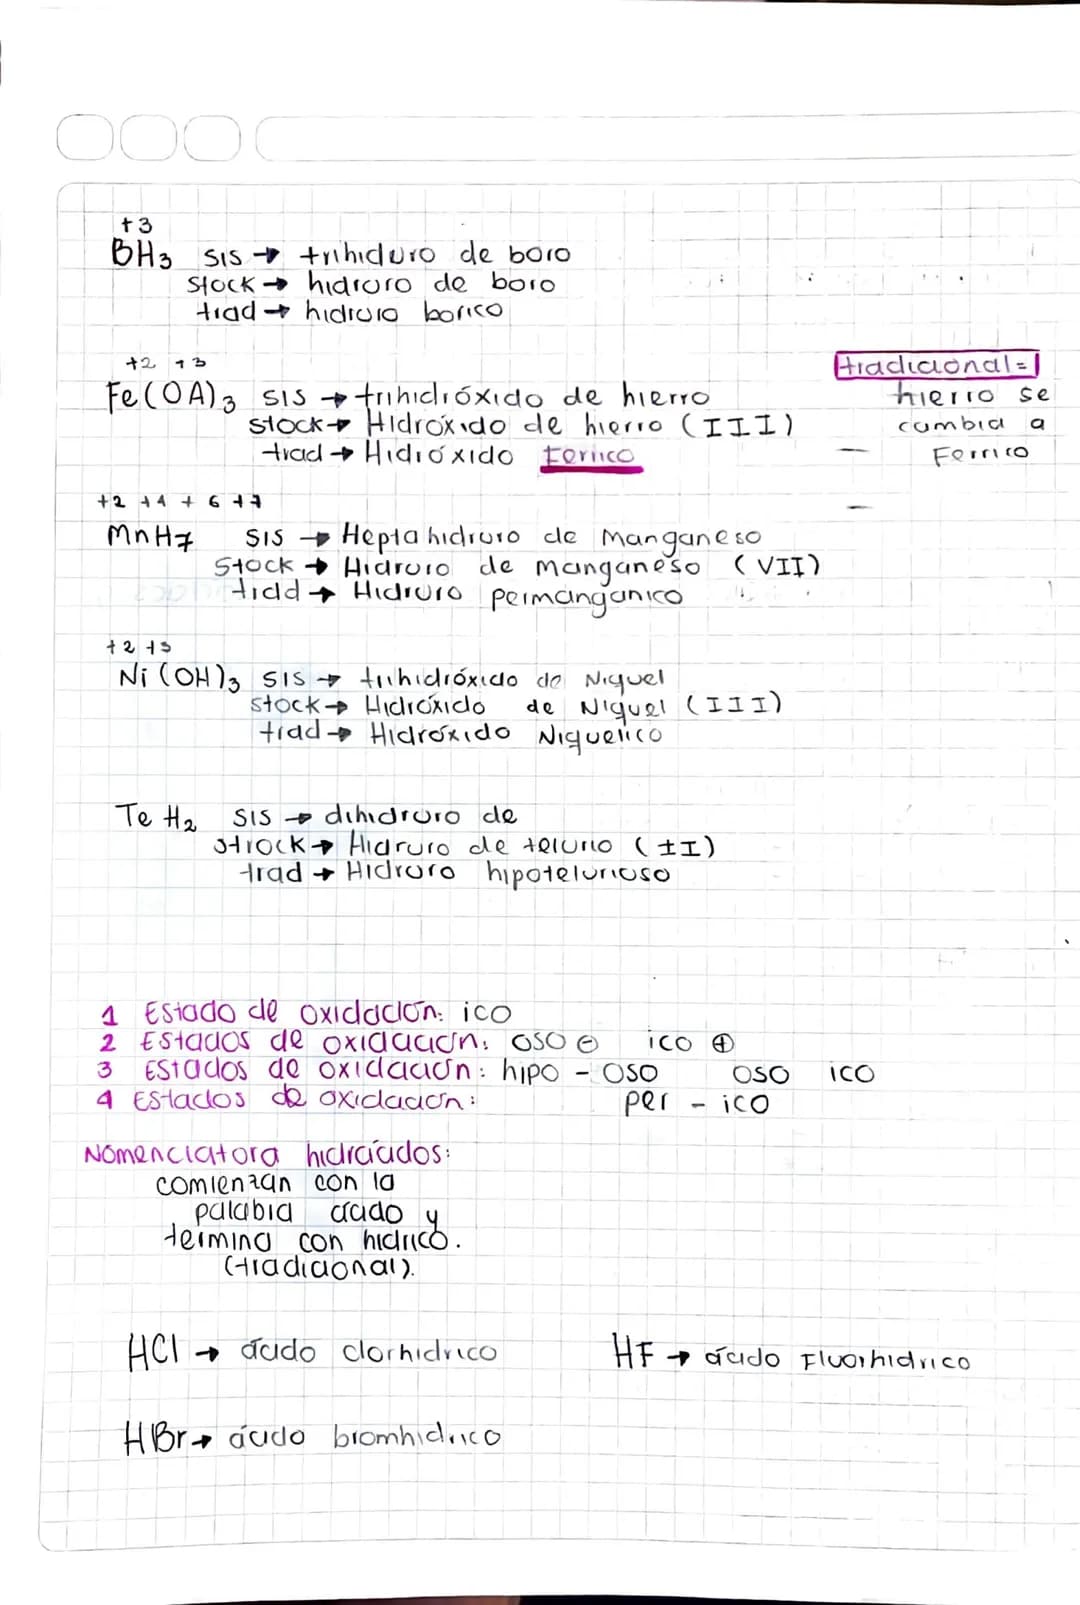 +3
BH3 sis → trihiduro de boro
stock → hidruro de boro
trad → hidruro borico
+2 +3
Fe(OA)3 sis → trihidróxido de hierro
stock → Hidróxido de hierro (III)
trad → Hidróxido Ferrico
tradicional =
hierro se
cambia a
Ferrico
+2 +4 +6 +7
MnH7 sis → Hepta hidruro de Manganeso
Stock → Hidruro de manganeso (VII)
trad → Hidruro permanganico
+2 +3
Ni(OH)3 sis → trihidróxido de Niquel
stock → Hidróxido de Niquel (III)
trad → Hidróxido Niquelico
TeH2 sis → dihidruro de
strock → Hidruro de telurio (±I)
trad → Hidruro hipotelurioso
1 Estado de oxidación: ico
2 Estados de oxidación: oso ⊖ ico ⊕
3 Estados de oxidación: hipo - oso oso ico
4 Estados de oxidación: per - ico
Nomenclatura hidrácidos:
comienzan con la
palabra ácido y
termina con hidrico.
(tradicional).
HCl → ácido clorhidrico
HF → ácido Fluorhidrico
HBr → ácido bromhidrico